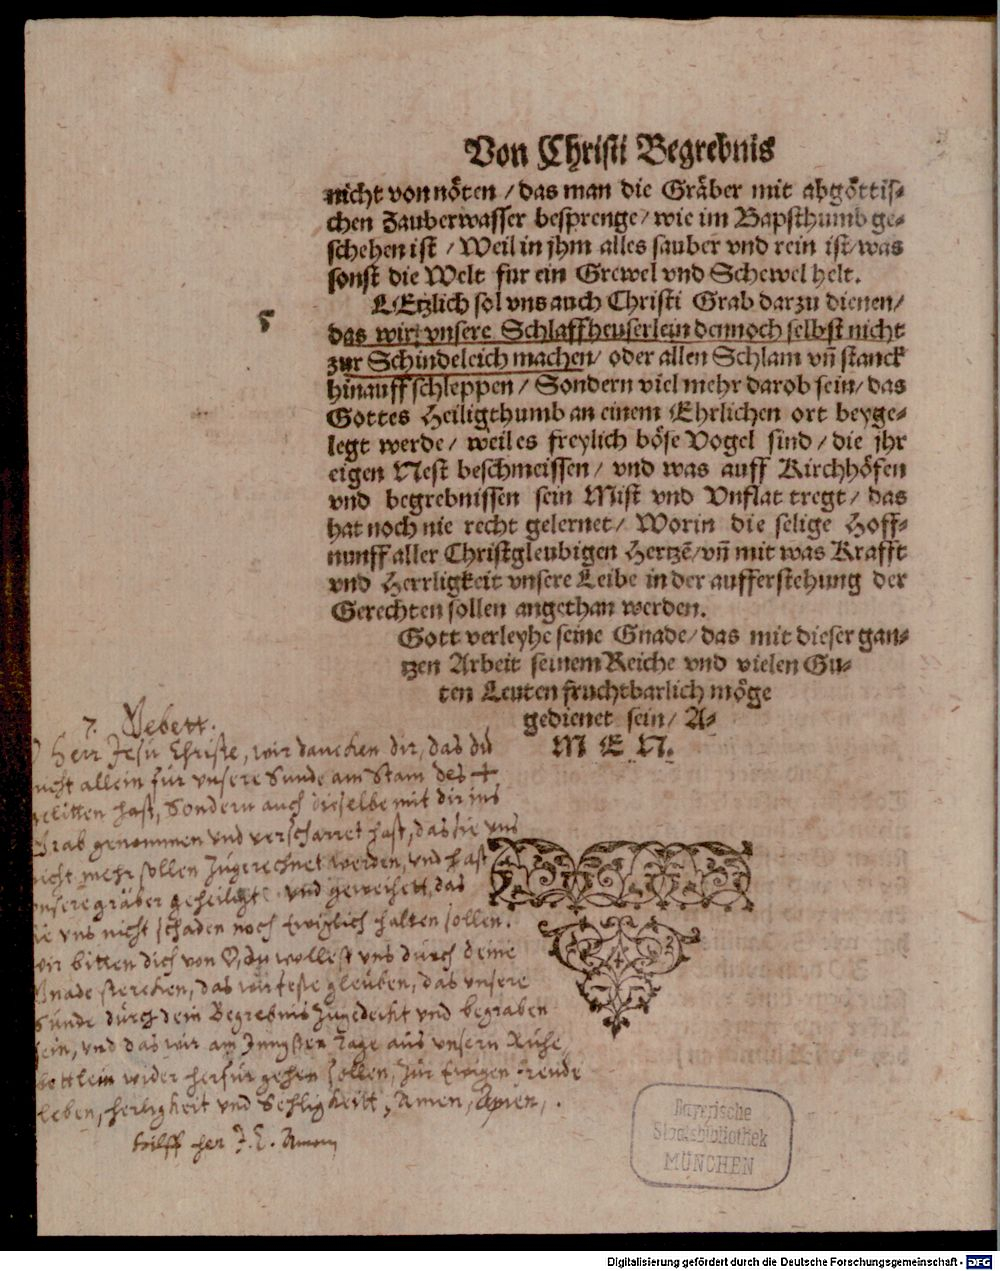 Von Christi Begrebnis
nicht von nöten / das man die Gräber mit abgöttis-
chen Zauberwasser besprenge / wie im Bapsthumb ge-
schehen ist / Weil in jhm alles sauber vnd rein ist / was
sonst die Welt fur ein Grewel vnd Schewel helt.
LEtzlich sol vns auch Christi Grab darzu dienen /
5
das wir vnsere Schlaffheuserlein dennoch selbst nicht
zur Schindeleich machen / oder allen Schlam vn̄ stanck
hinauff schleppen / Sondern viel mehr darob sein / das
Gottes Heiligthumb an einem Ehrlichen ort beyge-
legt werde / weil es freylich böse Vogel sind / die jhr
eigen Nest beschmeissen / vnd was auff Kirchhöfen
vnd begrebnissen sein Mist vnd Vnflat tregt / das
hat noch nie recht gelernet / Worin die selige Hoff-
nunff aller Christgleubigen Hertzē / vn̄ mit was Krafft
vnd Herrligkeit vnsere Leibe in der aufferstehung der
Gerechten sollen angethan werden.
Gott verleyhe seine Gnade / das mit dieser gan-
tzen Arbeit seinem Reiche vnd vielen Gu-
ten Leuten fruchtbarlich möge
gedienet sein / A-
M E N.
7. Gebett.
Herr Jesu Christe, wir dancken dir, das du
nicht allein für vnsere Sunde am Stam des +
gelitten hast, Sondern auch dieselbe mit dir ins
Grab genommen vnd verscharret hast, das sie vns
nicht mehr sollen zugerechnet werden, vnd hast
vnsere gräber geheiligt vnd geweihett, das
sie vns nicht schaden noch Ewiglich halten sollen.
wir bitten dich von du wollest vns durch deine
Gnade stercken, das wir feste gleuben, das vnsere
Sünde durch dein Begrebnis zugedeckt vnd begraben
sein, vnd das wir am Jungsten Tage aus vnsern Ruhe
bettlein wider herfür gehen sollen, zur Ewigen freude
leben, herligkeit vnd Sehligkeitt, Amen, Amen,.
hilff her J. C. Amen
Bayerische
Staatsbibliothek
MÜNCHEN
Digitalisierung gefördert durch die Deutsche Forschungsgemeinschaft - DFG